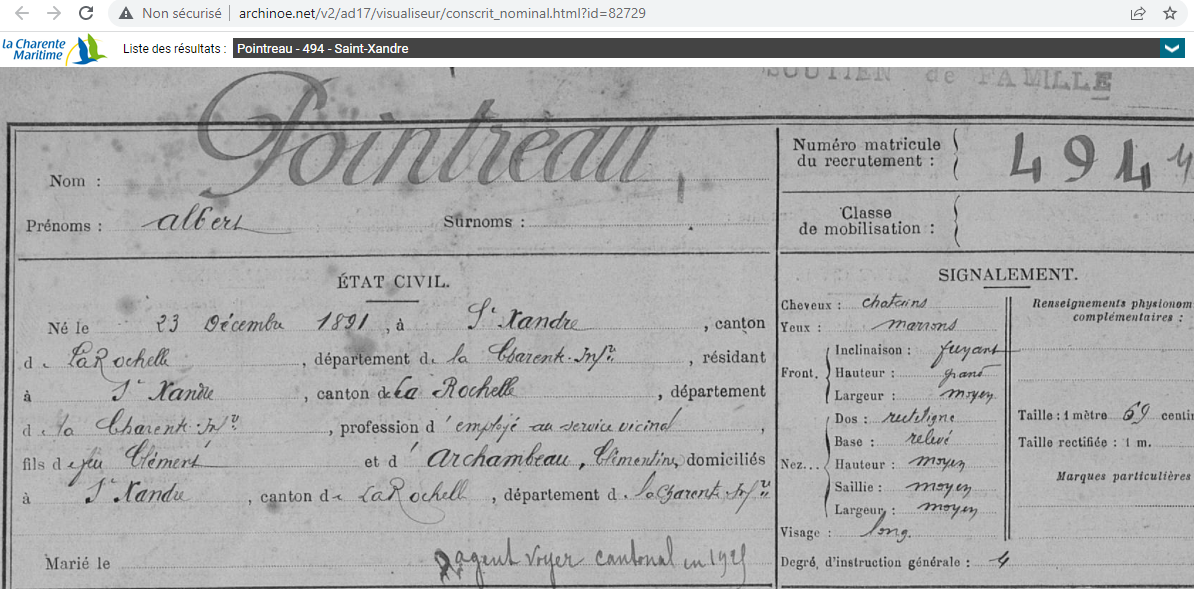 Non sécurisé | archinoe.net/v2/ad17/visualiseur/conscrit_nominal.html?id=82729
la Charente Maritime
Liste des résultats : Pointreau - 494 - Saint-Xandre
SOUTIEN de FAMILLE
Nom : Pointreau
Prénoms : albert Surnoms :
Numéro matricule du recrutement : 494
Classe de mobilisation :
ÉTAT CIVIL.
Né le 23 Décembre 1891, à St Xandre, canton
de La Rochelle, département de la Charente-Infre, résidant
à St Xandre, canton de La Rochelle, département
de la Charente-Infre, profession d'employé au service vicinal,
fils de feu Clément et d'Archambeau, Clémentine, domiciliés
à St Xandre, canton de La Rochelle, département de la Charente-Infre
Marié le
agent voyer cantonal en
SIGNALEMENT.
Cheveux : chatains
Yeux : marrons
Front.
Inclinaison : fuyant
Hauteur : grand
Largeur : moyen
Nez...
Dos : rectiligne
Base : relevé
Hauteur : moyen
Saillie : moyen
Largeur : moyen
Visage : long.
Renseignements physionom
complémentaires :
Taille : 1 mètre 69 centi
Taille rectifiée : 1 m.
Marques particulières
Degré d'instruction générale : 4